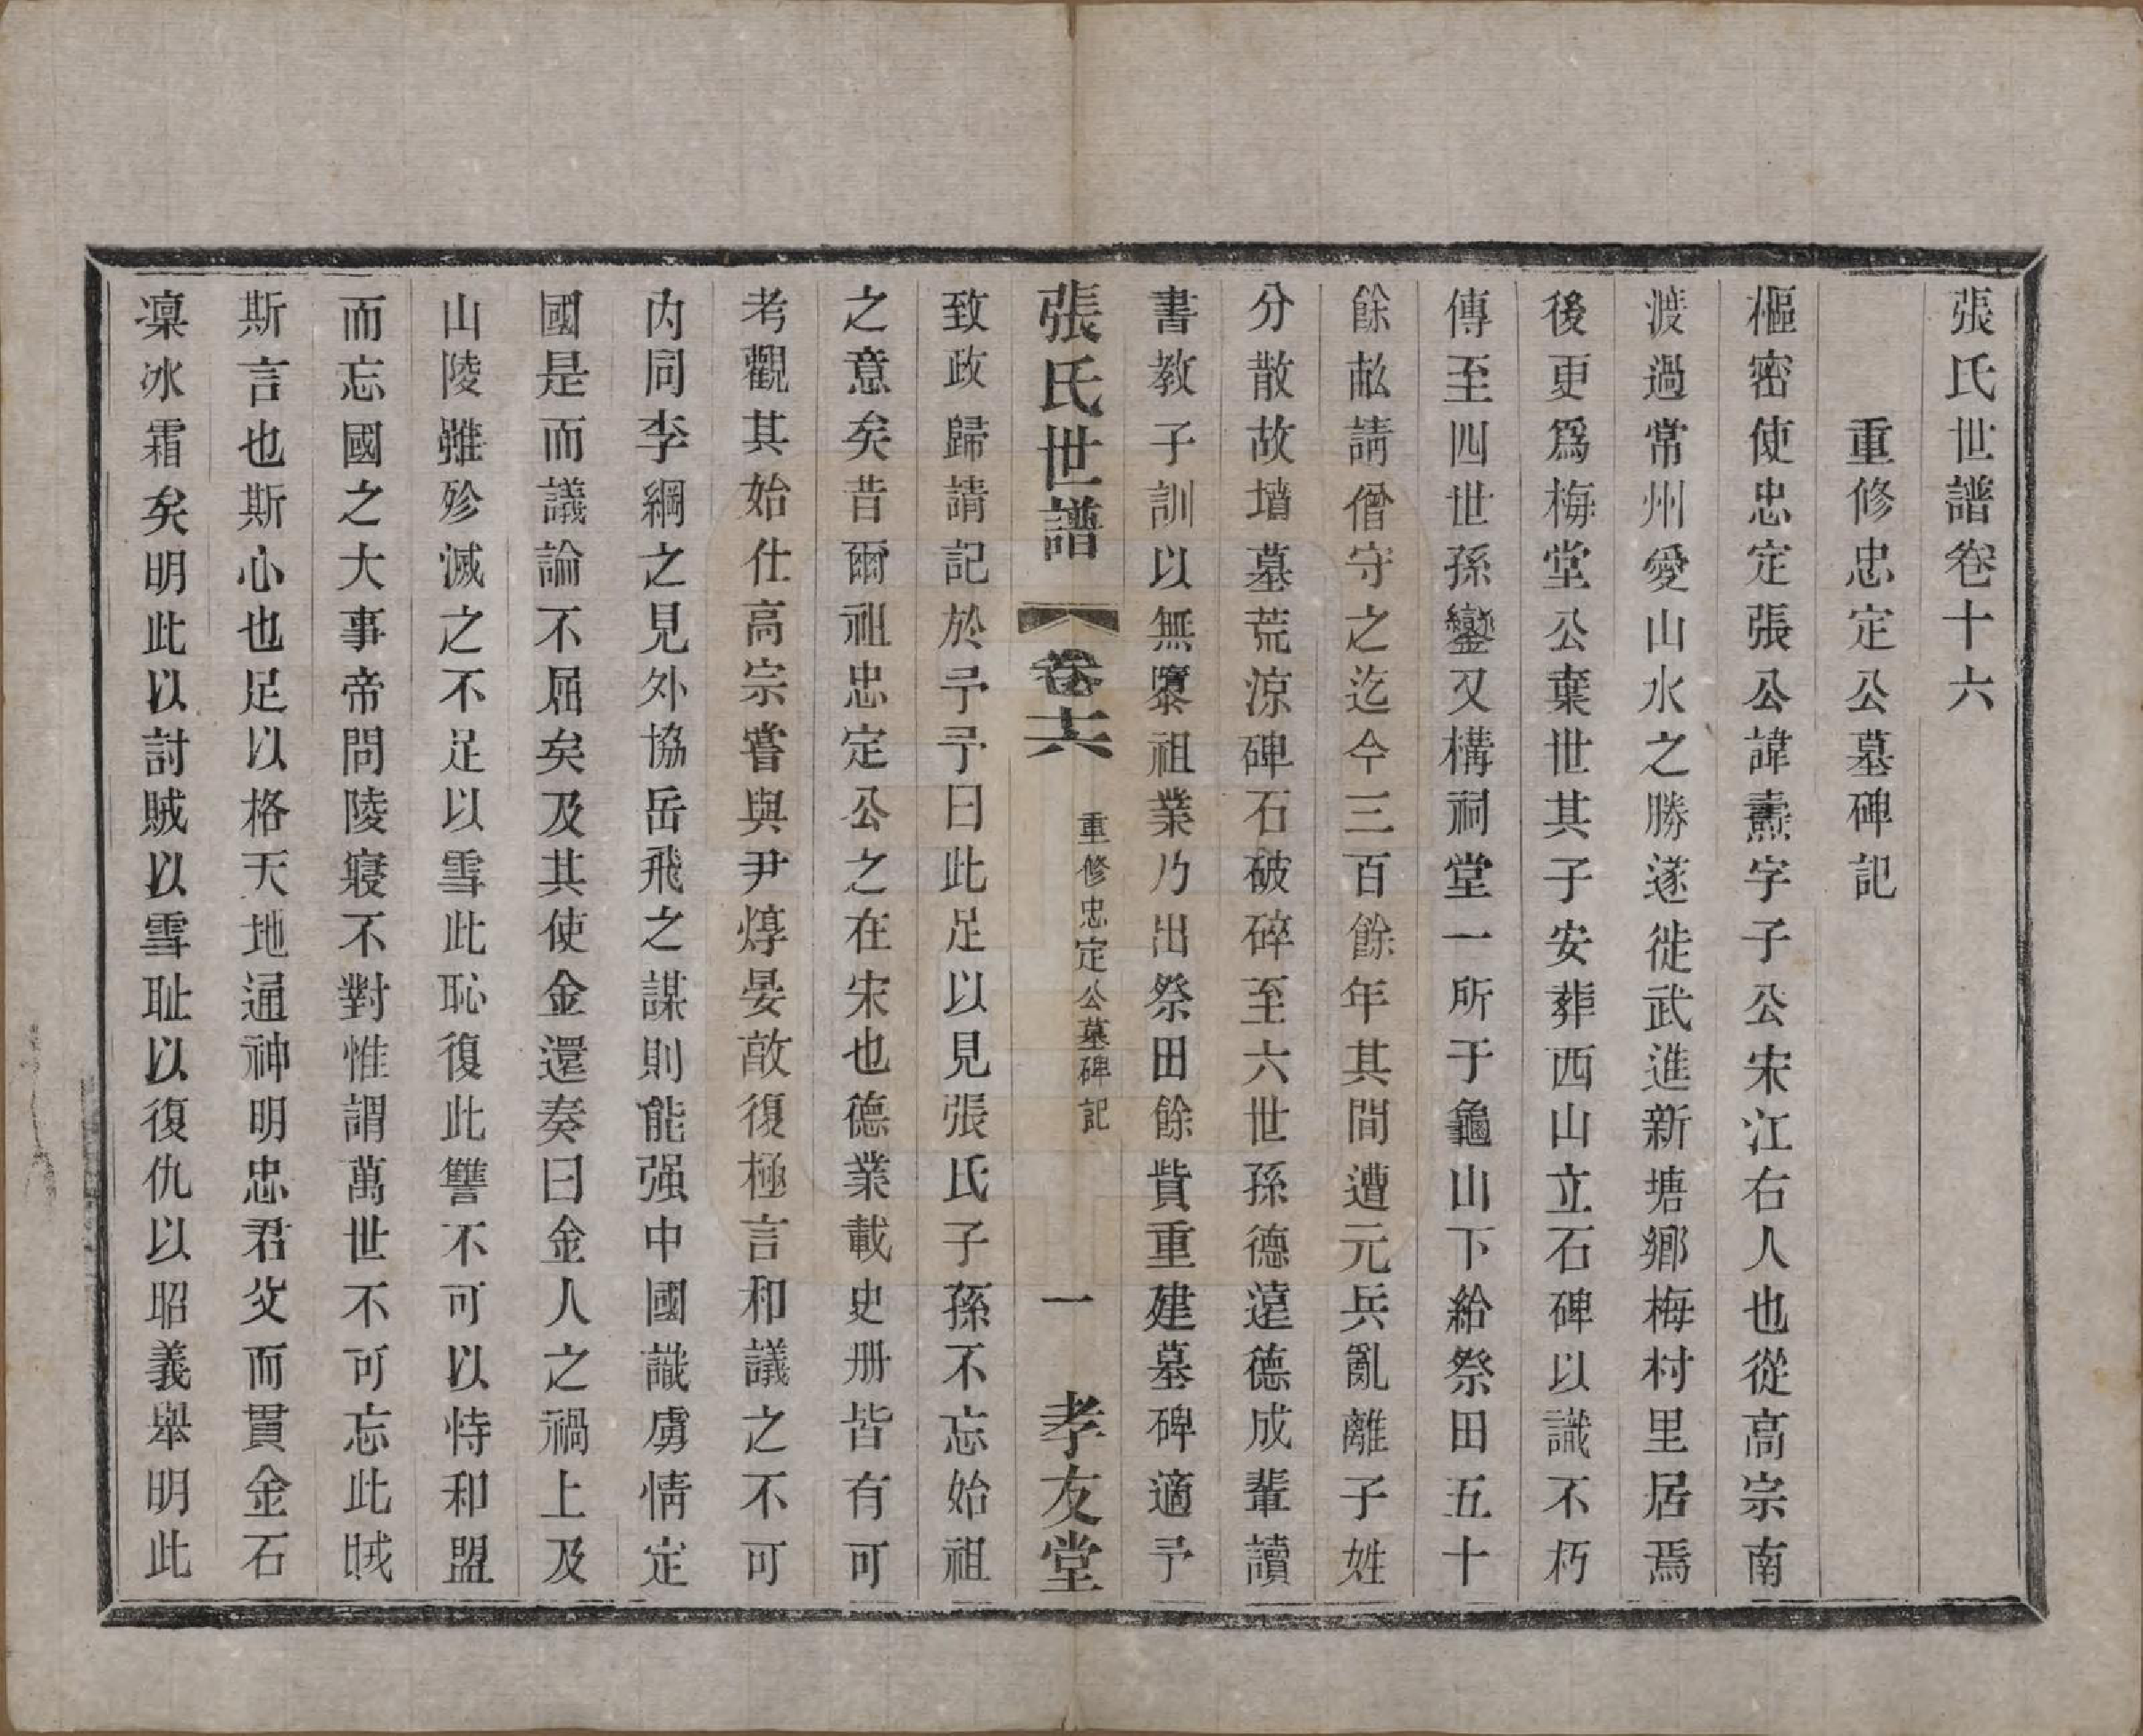 張氏世譜卷十六
重修忠定公墓碑記
樞密使忠定張公諱燾字子公宋江右人也從高宗南
渡過常州愛山水之勝遂徙武進新塘鄉梅村里居焉
後更爲梅堂公棄世其子安葬西山立石碑以識不朽
傳至四世孫鑾又構祠堂一所于龜山下給祭田五十
餘畝請僧守之迄今三百餘年其間遭元兵亂離子姓
分散故墻墓荒涼碑石破碎至六世孫德遠德成輩讀
書教子訓以無隳祖業乃出祭田餘貲重建墓碑適予
張氏世譜 卷十六 重修忠定公墓碑記 一 孝友堂
致政歸請記於予予曰此足以見張氏子孫不忘始祖
之意矣昔爾祖忠定公之在宋也德業載史册皆有可
考觀其始仕高宗嘗與尹焞晏敵復極言和議之不可
內同李綱之見外協岳飛之謀則能强中國識虜情定
國是而議論不屈矣及其使金還奏曰金人之禍上及
山陵雖殄滅之不足以雪此恥復此讐不可以恃和盟
而忘國之大事帝問陵寢不對惟謂萬世不可忘此賊
斯言也斯心也足以格天地通神明忠君父而貫金石
凜冰霜矣明此以討賊以雪耻以復仇以昭義舉明此